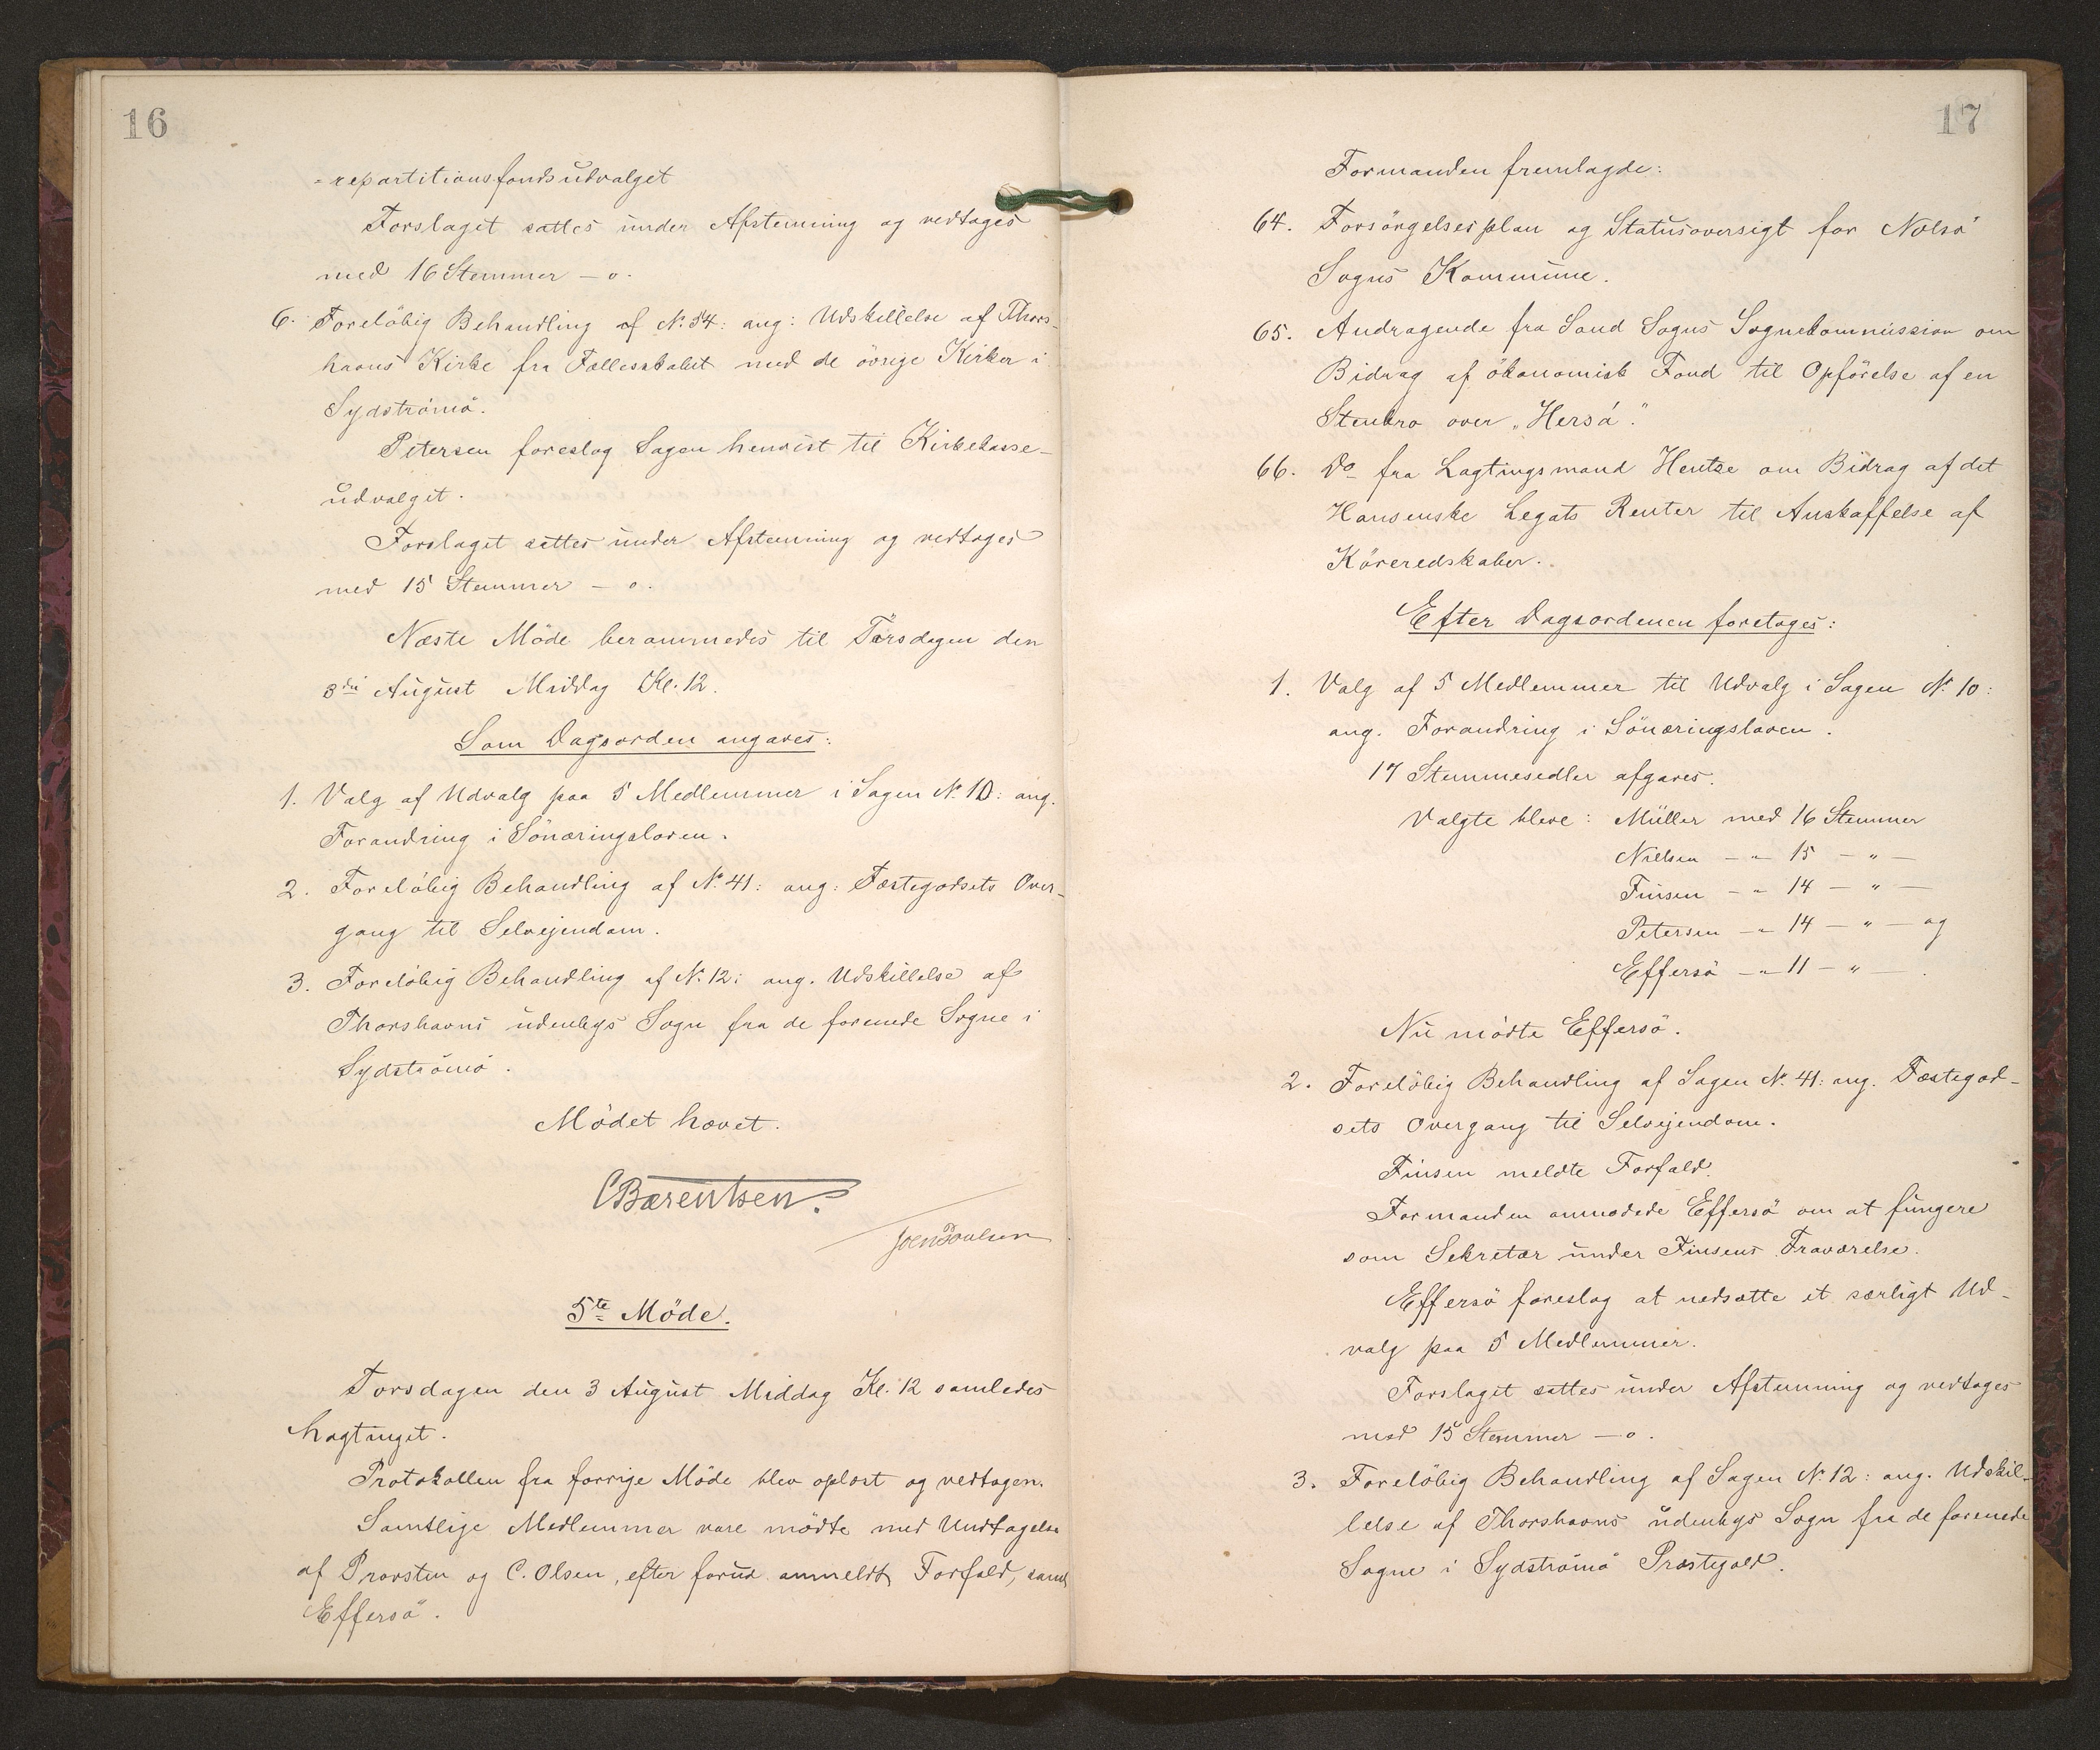 16
-repartitionsfondsudvalget
Forslaget sattes under Afstemning og vedtoges
med 16 Stemmer – o.
6. Foreløbig Behandling af N. 54: ang: Udskillelse af Thors-
havns Kirke fra Fællesskabet med de övrige Kirker i
Sydströmö.
Petersen foreslog Sagen henvist til Kirkekasse-
udvalget.
Forslaget sattes under Afstemning og vedtoges
med 15 Stemmer – o.
Næste Möde berammedes til Torsdagen den
3die August Middag Kl. 12.
Som Dagsorden angaves:
1. Valg af Udvalg paa 5 Medlemmer i Sagen N. 10: ang.
Forandring i Sönæringsloven.
2. Forelöbig Behandling af N. 41: ang: Fæstegodsets Over-
gang til Selvejendom.
3. Forelöbig Behandling af N. 12: ang. Udskillelse af
Thorshavns udenbys Sogn fra de forenede Sogne i
Sydströmö.
Mödet hævet.
CBærentsen.
Joen Poulsen
5te Möde.
Torsdagen den 3 August Middag Kl. 12 samledes
Lagtinget.
Protokollen fra forrige Möde blev oplæst og vedtagen.
Samtlige Medlemmer vare mödte med Undtagelse
af Provsten og C. Olsen, efter forud anmeldt Forfald, samt
Effersö.
17
Formanden fremlagde:
64. Forsörgelsesplan og Statusoversigt for Nolsö
Sogns Kommune.
65. Andragende fra Sand Sogns Sognekommission om
Bidrag af ökonomisk Fond til Opförelse af en
Stenbro over „Hersá".
66. Do fra Lagtingsmand Hentze om Bidrag af det
Hansenske Legats Renter til Anskaffelse af
Köreredskaber.
Efter Dagsordenen foretoges:
1. Valg af 5 Medlemmer til Udvalg i Sagen N. 10:
ang. Forandring i Sönæringsloven.
17 Stemmesedler afgaves.
Valgte bleve: Müller med 16 Stemmer
Nielsen – " – 15 – " –
Finsen – " – 14 – " –
Petersen – " – 14 – " – og
Effersö – " – 11 – " – .
Nu mödte Effersö.
2. Forelöbig Behandling af Sagen N. 41: ang. Fæstegod-
sets Overgang til Selvejendom.
Finsen meldte Forfald.
Formanden anmodede Effersö om at fungere
som Sekretær under Finsens Fraværelse.
Effersö foreslog at nedsætte et særligt Ud-
valg paa 5 Medlemmer.
Forslaget sattes under Afstemning og vedtoges
med 15 Stemmer – o.
3. Forelöbig Behandling af Sagen N. 12: ang. Udskil-
lelse af Thorshavns udenbys Sogn fra de forenede
Sogne i Sydströmö Præstegæld.